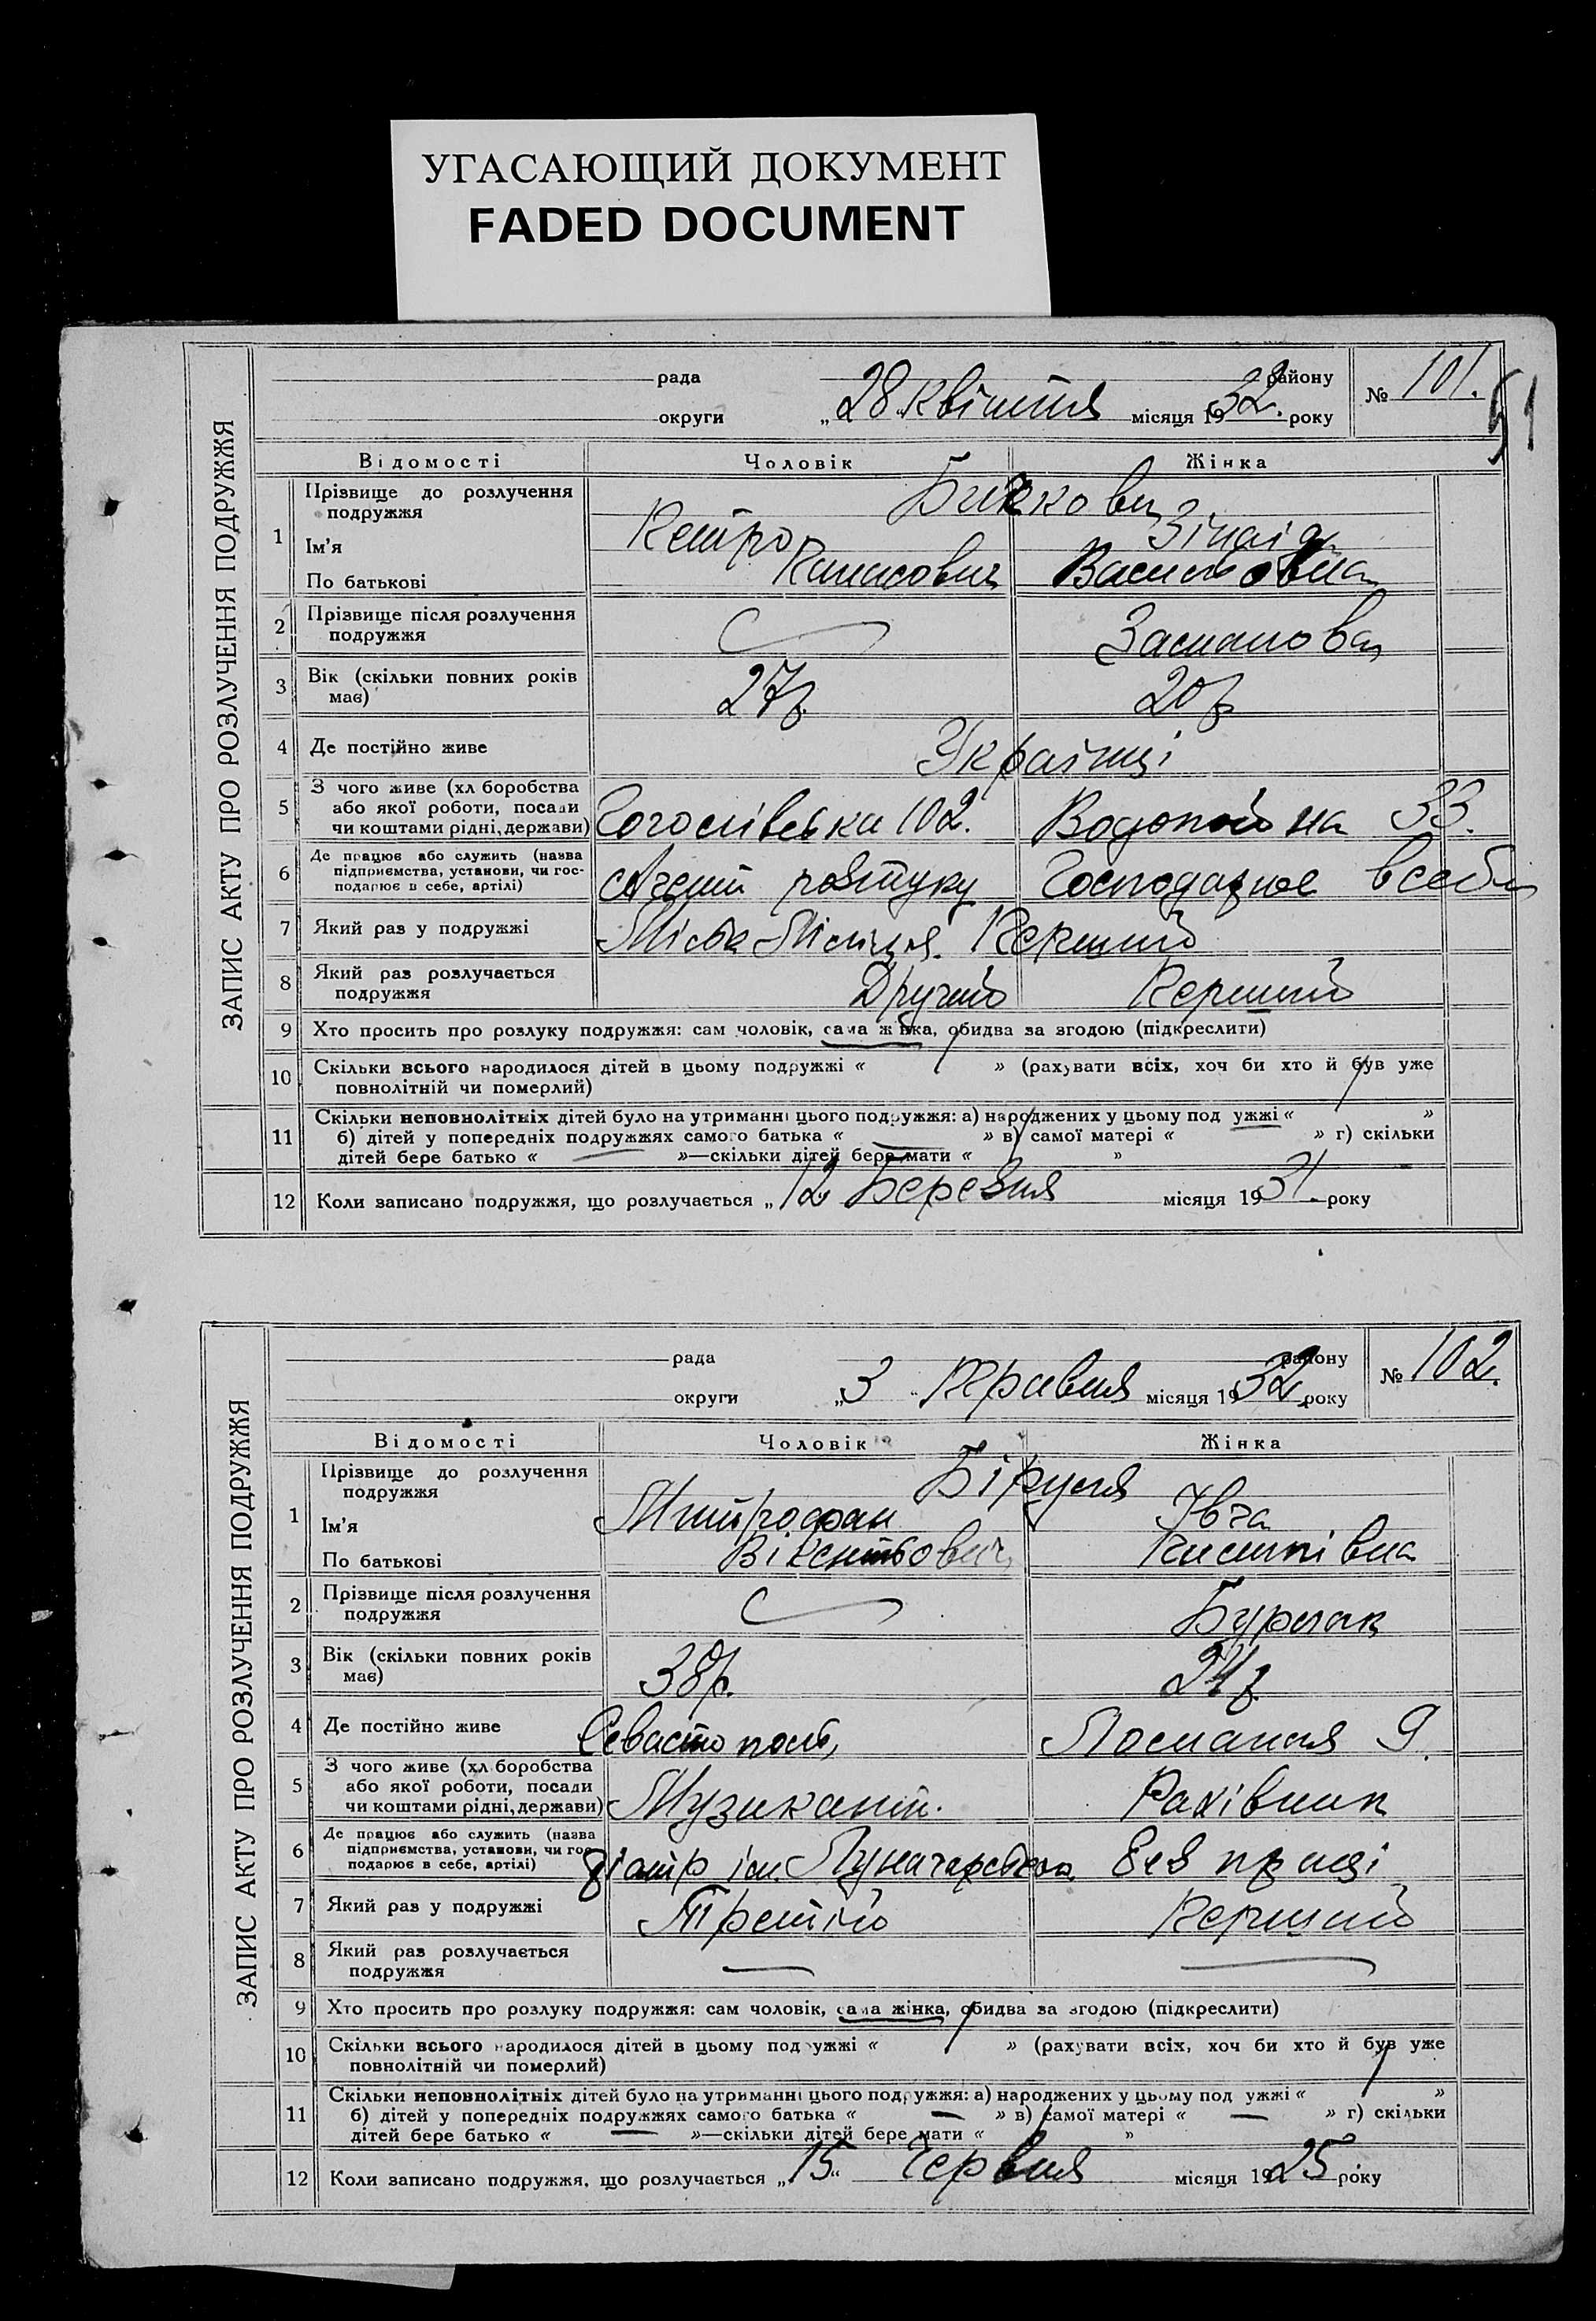 УГАСАЮЩИЙ ДОКУМЕНТ
FADED DOCUMENT
51
ЗАПИС АКТУ ПРО РОЗЛУЧЕННЯ ПОДРУЖЖЯ
рада району № 101.
округи „28 квітня місяця 1932. року
Відомості Чоловік Жінка
1 Прізвище до розлучення подружжя
Ім’я Петро Зінаїда
По батькові Панасович Василівна
2 Прізвище після розлучення подружжя
3 Вік (скільки повних років має) 27р. 20р
4 Де постійно живе Українці
5 З чого живе (хл боробства
або якої роботи, посади
чи коштами рідні, держави) 102. Водопойна 33.
6 Де працює або служить (назва
підприємства, установи, чи гос-
подарює в себе, артілі) Агент розшуку Господарює в себе
7 Який раз у подружжі Перший
8 Який раз розлучається подружжя Другий Перший
9 Хто просить про розлуку подружжя: сам чоловік, сама жінка, обидва за згодою (підкреслити)
10 Скільки всього народилося дітей в цьому подружжі « » (рахувати всіх, хоч би хто й був уже
повнолітній чи померлий)
11 Скільки неповнолітніх дітей було на утриманні цього подружжя: а) народжених у цьому под ужжі « »
б) дітей у попередніх подружжях самого батька « » в) самої матері « » г) скільки
дітей бере батько « »—скільки дітей бере мати « »
12 Коли записано подружжя, що розлучається „12 Березня місяця 1931. року
ЗАПИС АКТУ ПРО РОЗЛУЧЕННЯ ПОДРУЖЖЯ
рада району № 102.
округи „3“ Травня місяця 1932 року
Відомості Чоловік Жінка
1 Прізвище до розлучення подружжя Біруля
Ім’я Митрофан Івга
По батькові Вікентьович Пилипівна
2 Прізвище після розлучення подружжя Бурлак
3 Вік (скільки повних років має) 38р.
4 Де постійно живе Севастополь, 9.
5 З чого живе (хл боробства
або якої роботи, посади
чи коштами рідні, держави) Музикант. Рахівник
6 Де працює або служить (назва
підприємства, установи, чи гос-
подарює в себе, артілі) ім. Луначарського Без праці
7 Який раз у подружжі Третій Перший
8 Який раз розлучається подружжя — —
9 Хто просить про розлуку подружжя: сам чоловік, сама жінка, обидва за згодою (підкреслити)
10 Скільки всього народилося дітей в цьому под ужжі « » (рахувати всіх, хоч би хто й був уже
повнолітній чи померлий)
11 Скільки неповнолітніх дітей було на утриманні цього подружжя: а) народжених у цьому под ужжі « »
б) дітей у попередніх подружжях самого батька « — » в) самої матері « — » г) скільки
дітей бере батько « — »—скільки дітей бере мати « »
12 Коли записано подружжя, що розлучається „15“ Червня місяця 1925 року